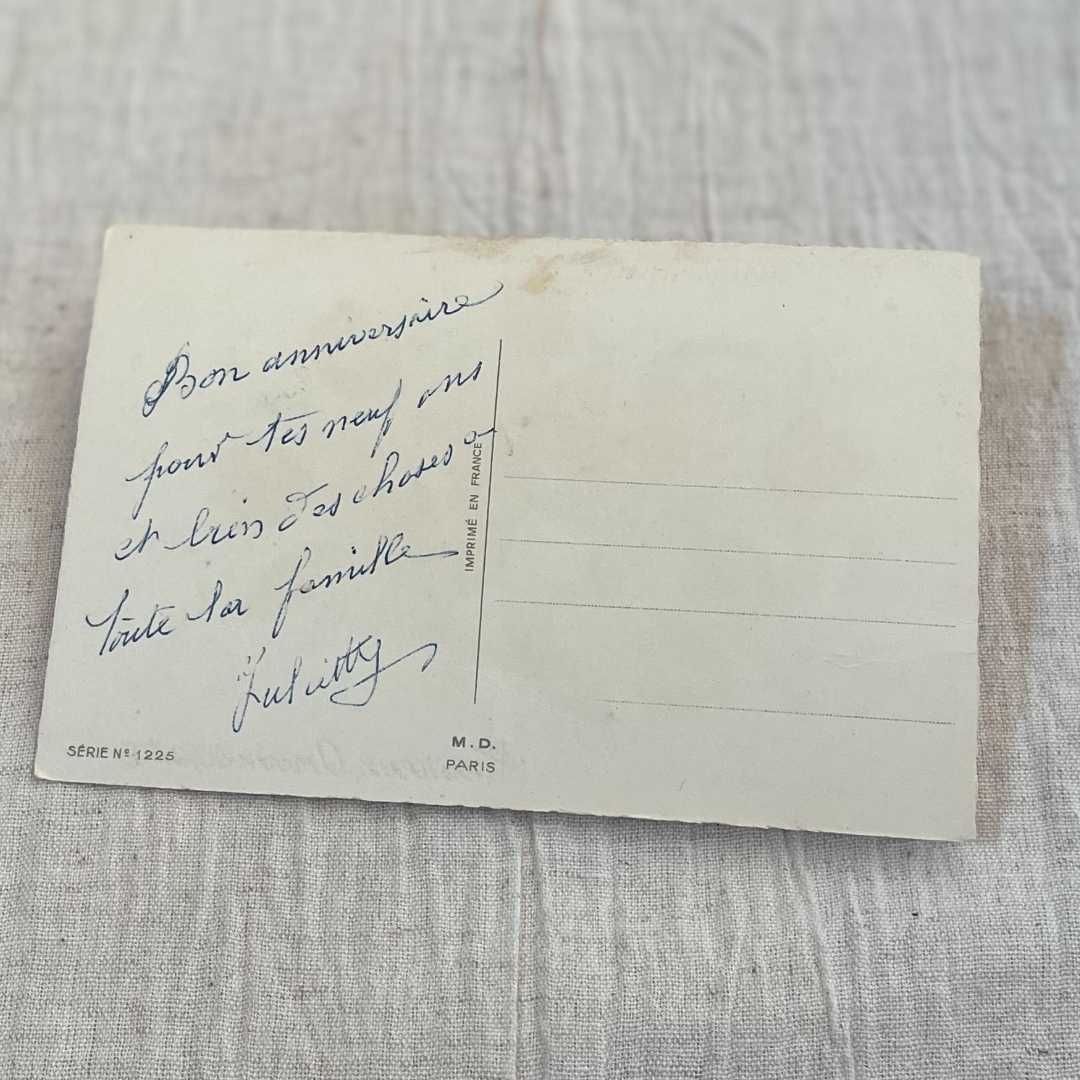 Bon anniversaire
pour tes neuf ans
et bien des choses a
toute la famille
IMPRIMÉ EN FRANCE
SÉRIE Nº 1225
M.D.
PARIS